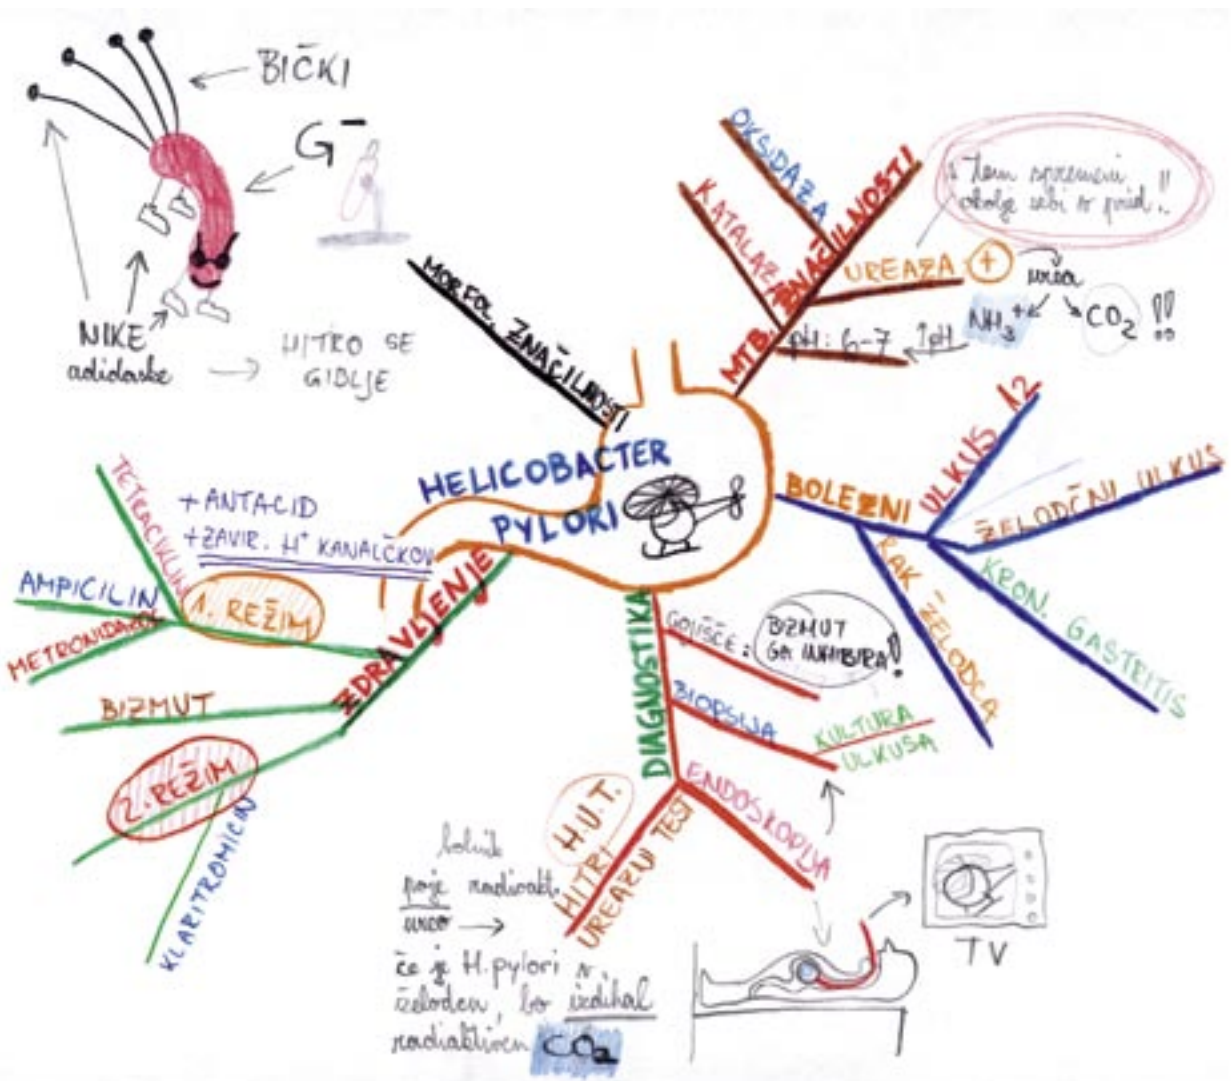 BIČKI
G-
NIKE
adidaske
HITRO SE
GIBLJE
MORFOL. ZNAČILNOSTI
HELICOBACTER
PYLORI
MTB. ZNAČILNOSTI
OKSIDAZA
KATALAZA
UREAZA +
s tem spremeni
okolje sebi v prid!!
urea
NH3+
CO2 !!
pH: 6-7 ↑pH
BOLEZNI
ULKUS 12
ŽELODČNI ULKUS
KRON. GASTRITIS
RAK ŽELODCA
DIAGNOSTIKA
GOJIŠČE:
BIZMUT
GA INHIBIRA!
BIOPSIJA
KULTURA
ULKUSA
ENDOSKOPIJA
TV
H.U.T.
HITRI
UREAZNI TEST
bolnik
poje radioakt.
ureo →
če je H.pylori v
želodcu, bo izdihal
radiaktiven CO2
ZDRAVLJENJE
+ ANTACID
+ ZAVIR. H+ KANALČKOV
1. REŽIM
TETRACIKLIN
AMPICILIN
METRONIDAZOL
BIZMUT
2. REŽIM
KLARITROMICIN